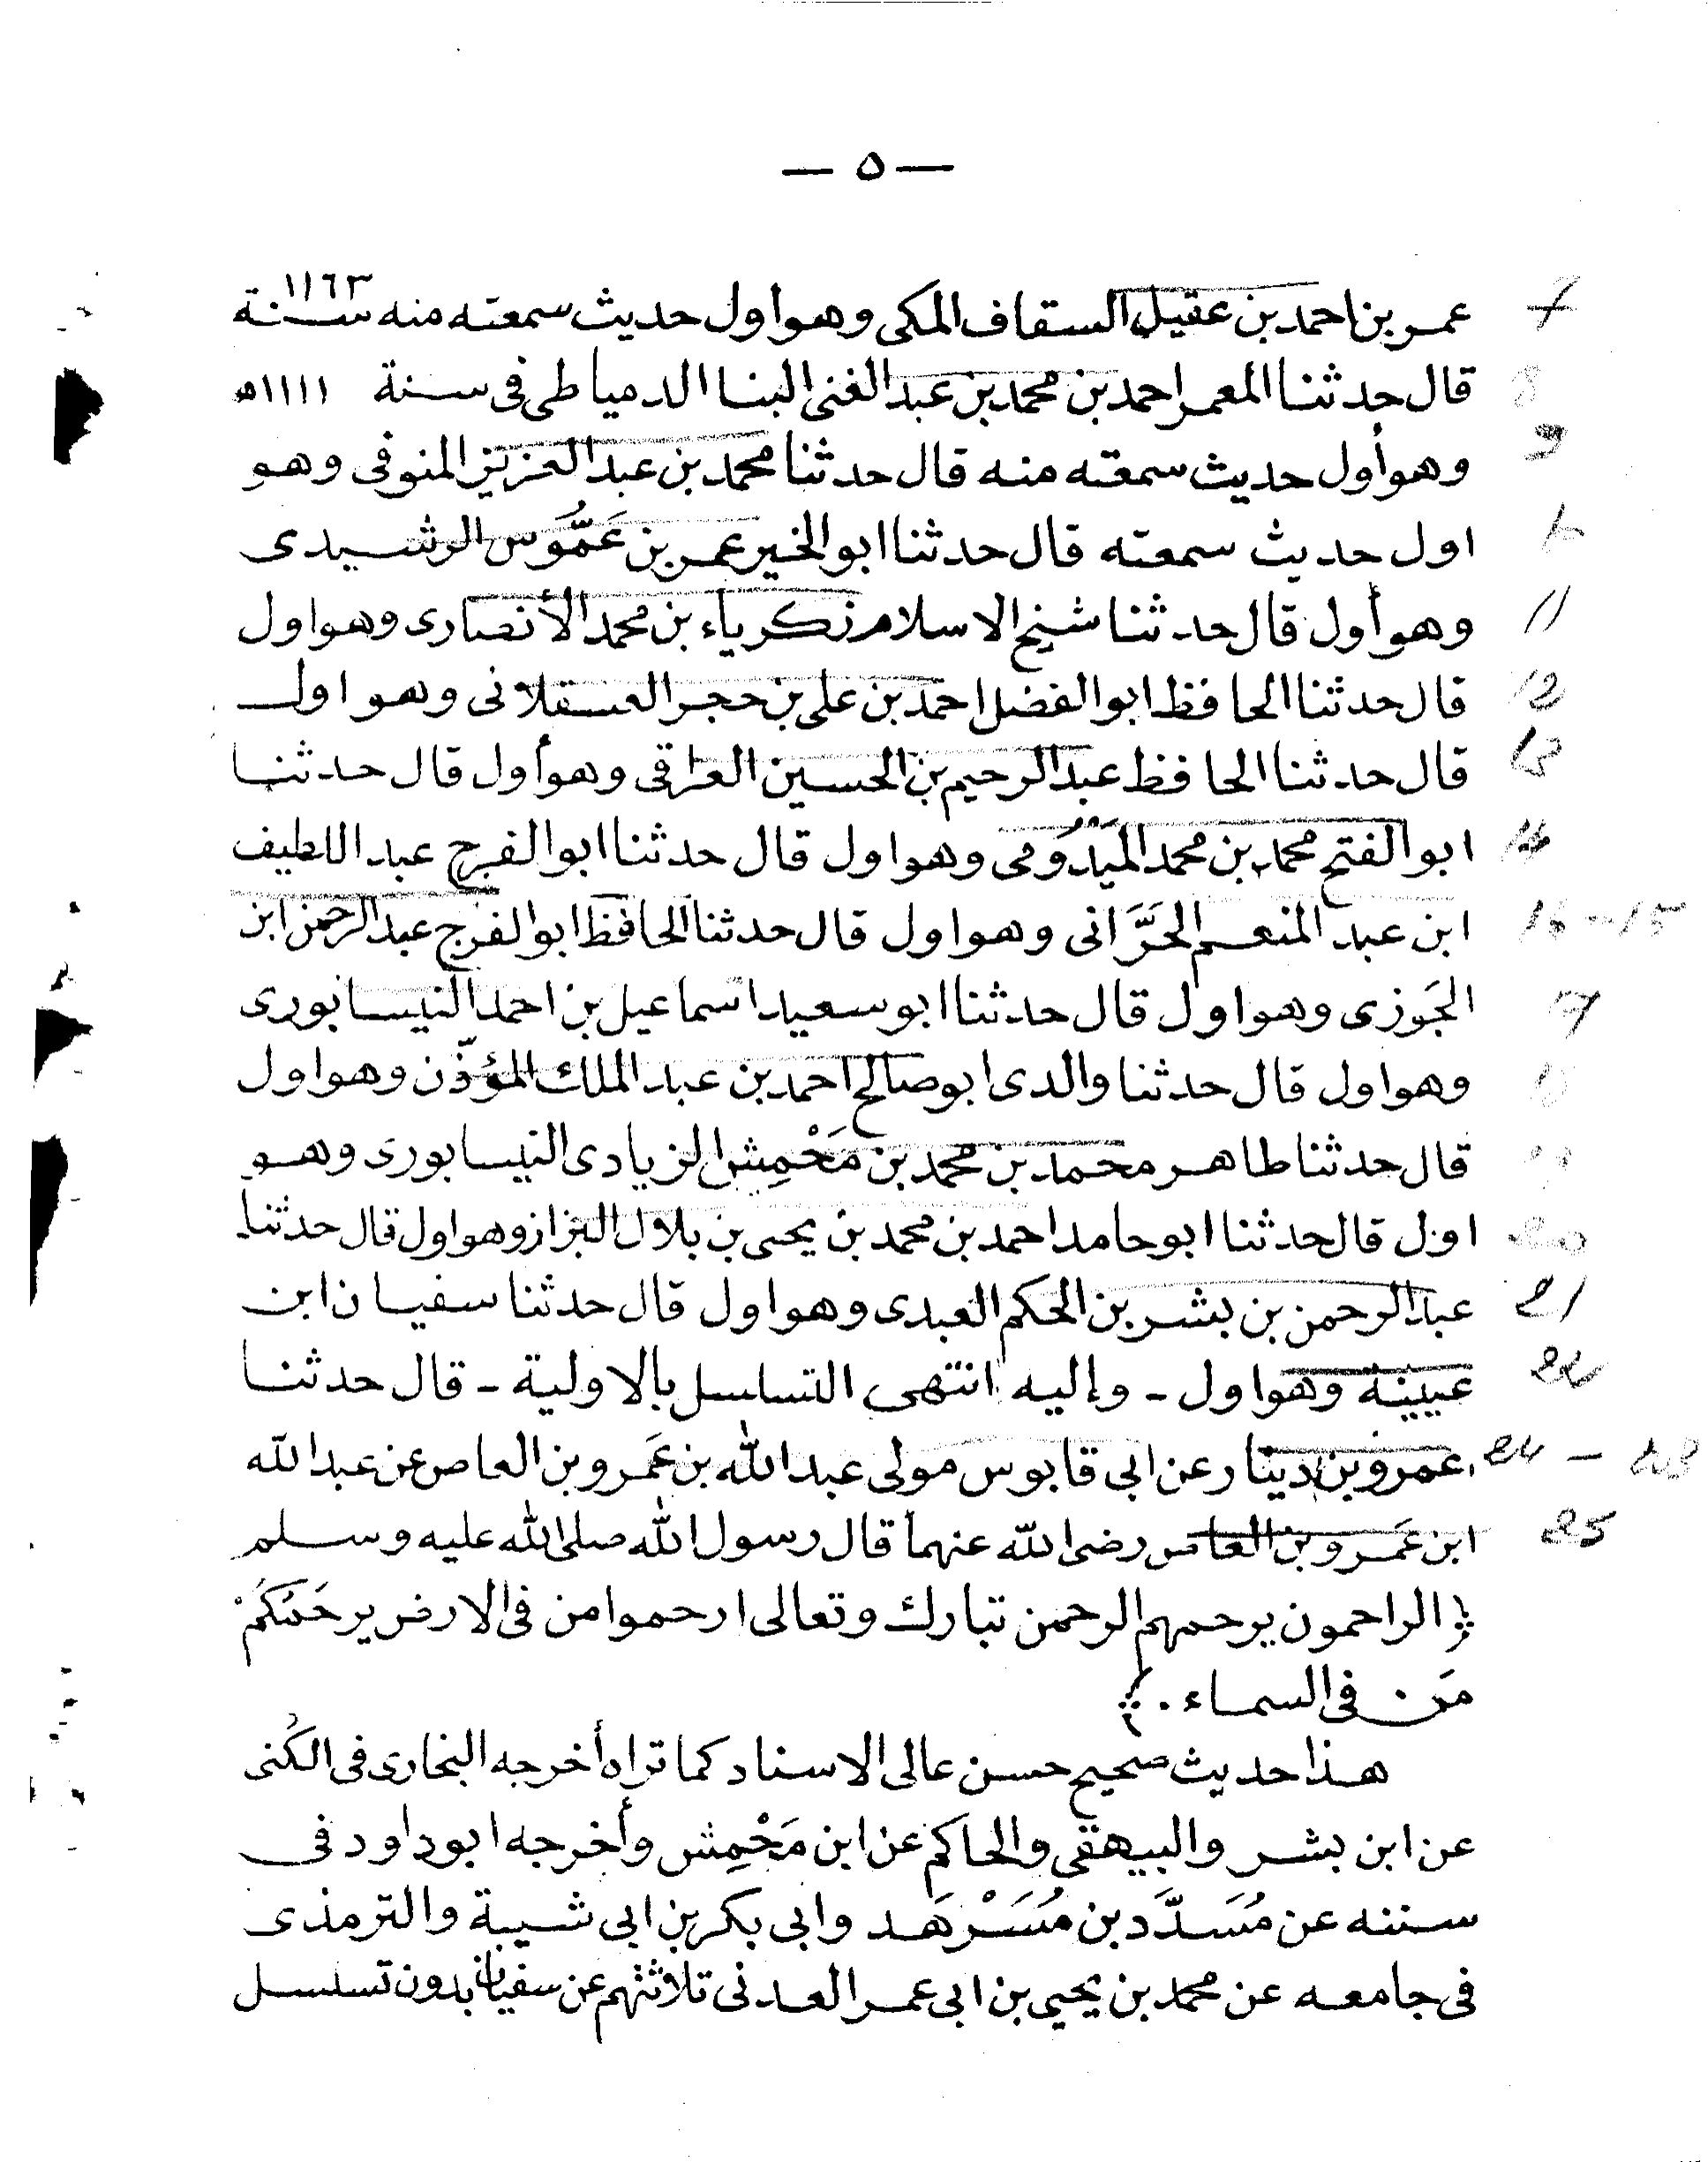 — ٥ —
عمر بن احمد بن عقيل السقاف المكى وهو اول حديث سمعته منه سنة ١١٦٣
قال حدثنا المعمر احمد بن محمد بن عبد الغنى البنا الدمياطى فى سنة ١١١١ه
وهو أول حديث سمعته منه قال حدثنا محمد بن عبد العزيز المنوفى وهو
اول حديث سمعته قال حدثنا ابو الخير عمر بن عَمُّوس الرشيدى
وهو أول قال حدثنا شيخ الاسلام زكرياء بن محمد الأنصارى وهو اول
قال حدثنا الحافظ ابو الفضل احمد بن على بن حجر العسقلانى وهو اول
قال حدثنا الحافظ عبد الرحيم بن الحسين العراقى وهو أول قال حدثنا
ابو الفتح محمد بن محمد المَيْدُومى وهو اول قال حدثنا ابو الفرج عبد اللطيف
ابن عبد المنعم الحَرَّانى وهو اول قال حدثنا الحافظ ابو الفرج عبد الرحمن ابن
الجَوزى وهو اول قال حدثنا ابو سعيد اسماعيل بن احمد النيسابورى
وهو اول قال حدثنا والدى ابو صالح احمد بن عبد الملك المؤذّن وهو اول
قال حدثنا طاهر محمد بن محمد بن مَحْمِش الزيادى النيسابورى وهو
اول قال حدثنا ابو حامد احمد بن محمد بن يحيى بن بلال البزاز وهو اول قال حدثنا
عبد الرحمن بن بشر بن الحكم العبدى وهو اول قال حدثنا سفيان ابن
عيينة وهو اول - وإليه انتهى التسلسل بالاولية - قال حدثنا
عمرو بن دينار عن ابى قابوس مولى عبد الله بن عَمرو بن العاص عن عبد الله
ابن عَمرو بن العاص رضى الله عنهما قال رسول الله صلى الله عليه وسلم
الراحمون يرحمهم الرحمن تبارك وتعالى ارحموا من فى الارض يرحمْكُمْ
مَن فى السماء .
هذا حديث صحيح حسن عالى الاسناد كما تراه أخرجه البخارى فى الكُنى
عن ابن بشر والبيهقى والحاكم عن ابن مَحْمِش وأخرجه ابو داود فى
سننه عن مُسَدَّد بن مُسَرْهَد وابى بكر بن ابى شيبة والترمذى
فى جامعه عن محمد بن يحيى بن ابى عمر العدنى ثلاثتهم عن سفيان بدون تسلسل
7
8
11
12
13
14
16 - 15
17
21
22
24 - 23
25